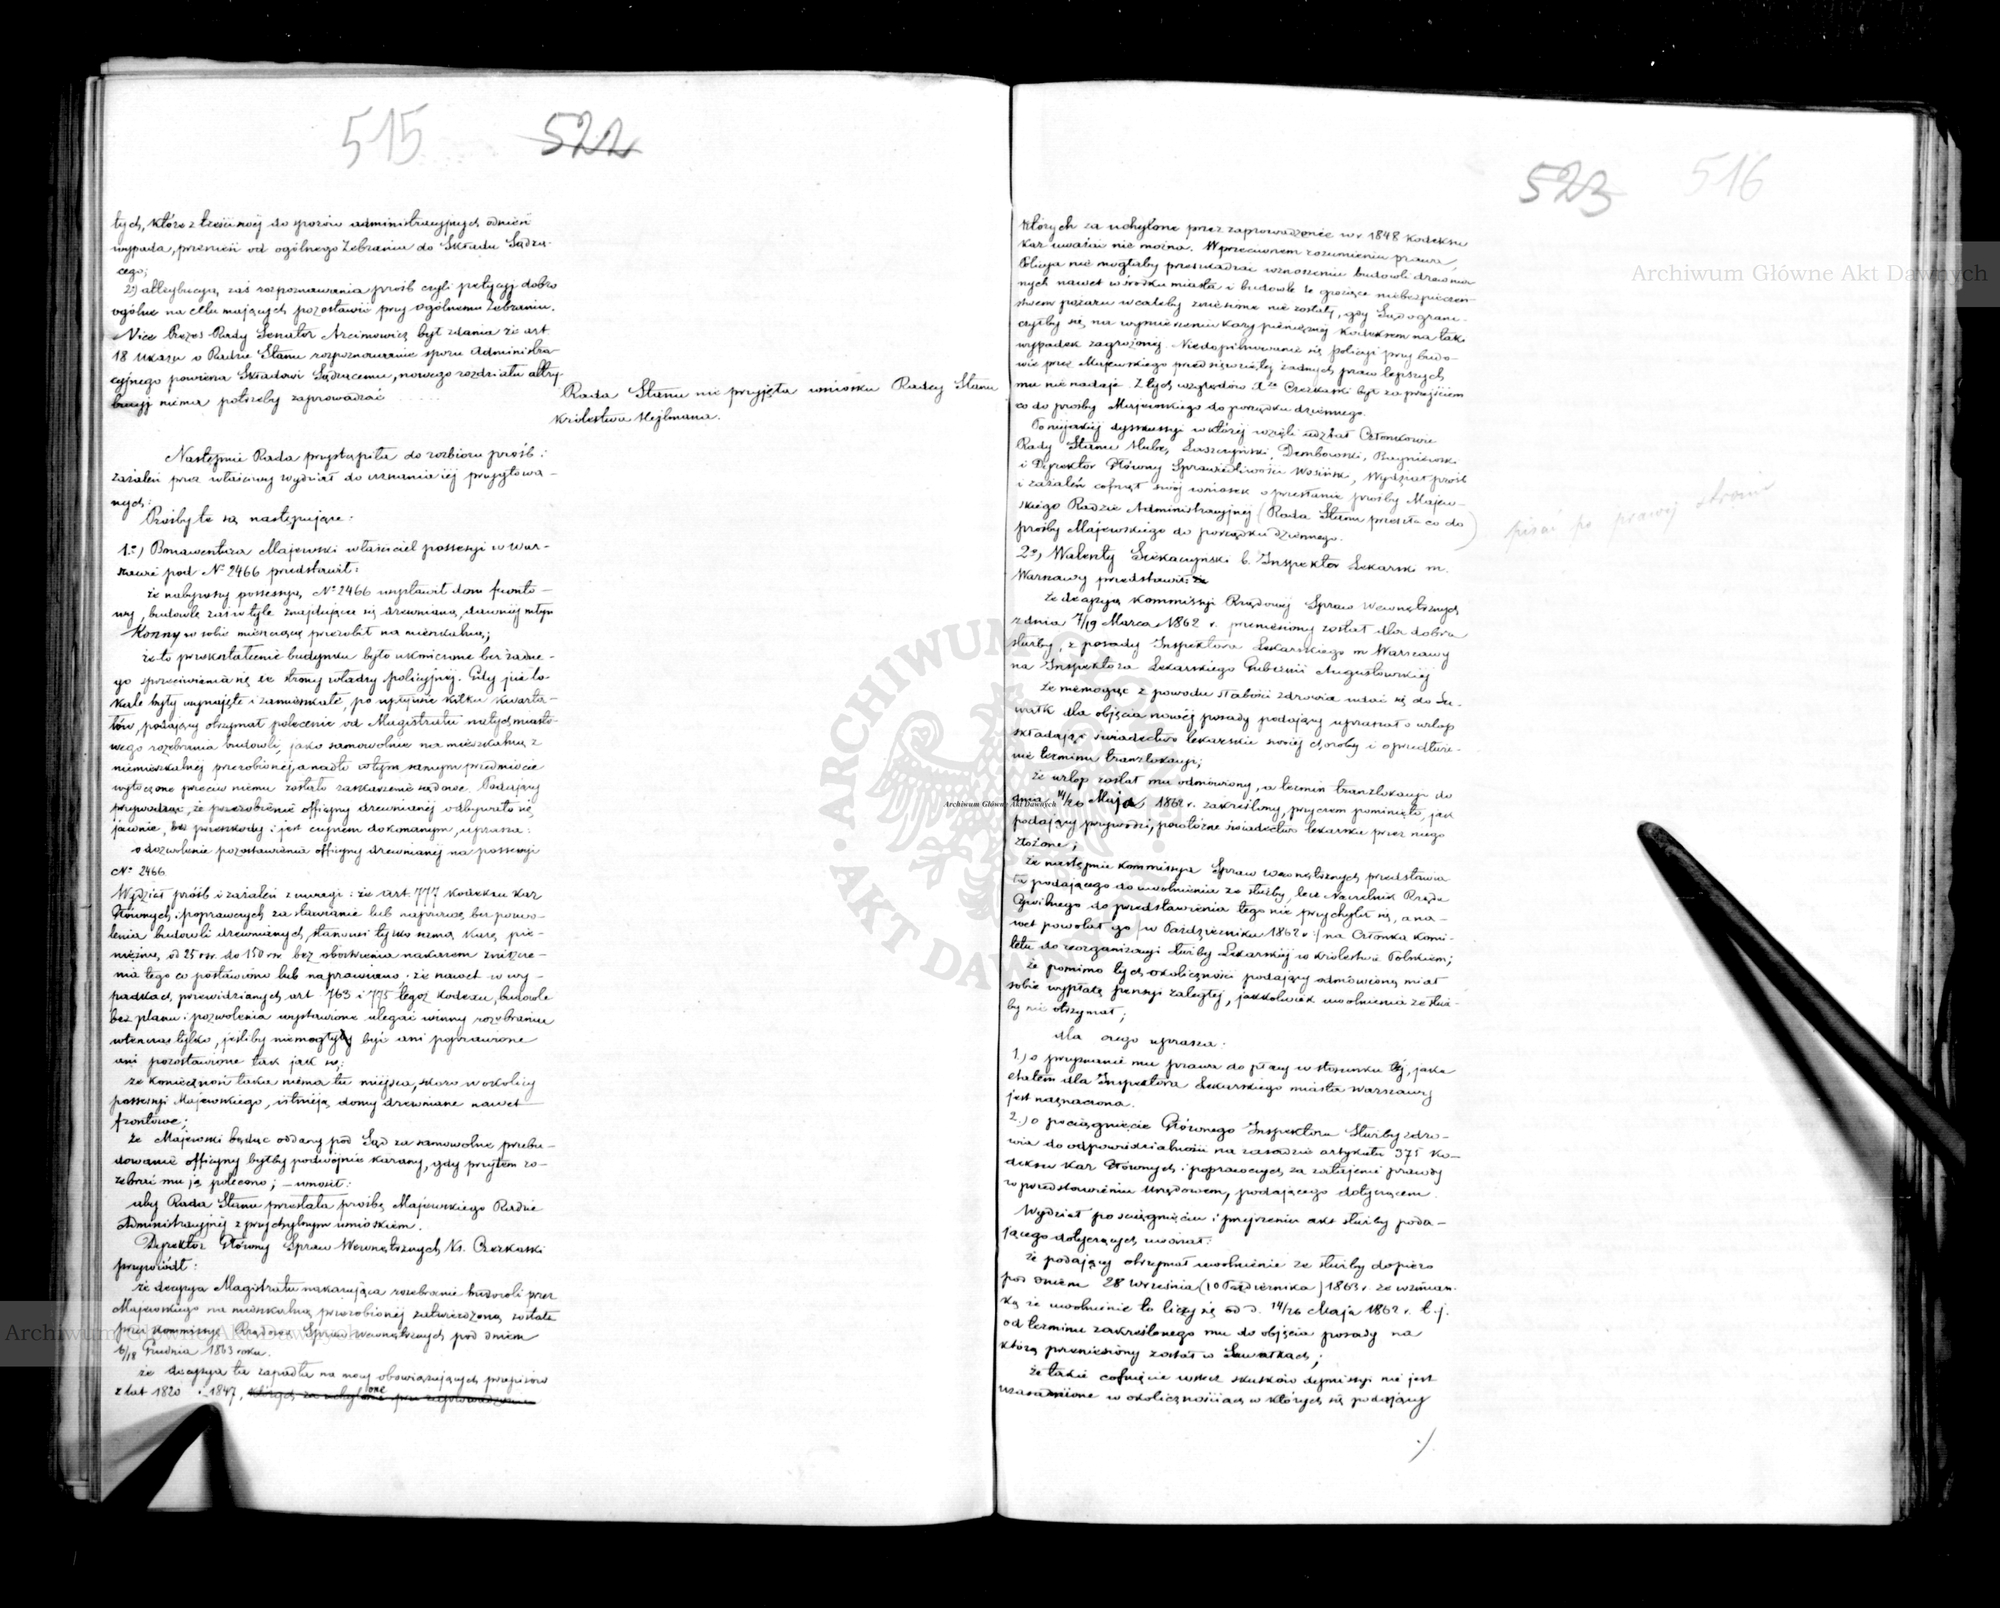 515 522
tych, które z treści swéj do sporów administracyjnych odnieść
wypada, przenieść od ogólnego Zebrania do Składu Sądzą-
cego;
2o) attrybucyą zaś rozpoznawania próśb czyli petycyj dobro
ogólne na celu mających pozostawić przy ogólnem Zebraniu.
Vice Prezes Rady Senator Arcimowicz był zdania że art.
18 Ukazu o Radzie Stanu rozpoznawanie sporu Administra-
cyjnego powierza Składowi Sądzącemu, nowego rozdziału attry-
bucyj niema potrzeby zaprowadzać
Rada Stanu nie przyjęła wniosku Radcy Stanu
Królestwa Heylmana.
Następnie Rada przystąpiła do rozbioru próśb i
zażaleń przez właściwy wydział do uznania jéj przygotowa-
nych:
Prośby te są następujące:
1o) Bonawentura Majewski właściciel possesyi w War-
szawie pod No 2466 przedstawił:
że nabywszy possessyą No 2466 wystawił dom fronto-
wy, budowlę zaś w tyle znajdującą się drewnianą, dawniéj młyn
Konny w sobie mieszczącą przerobił na mieszkalną;
że to przekształcenie budynku było uskutecznione bez żadne-
go sprzeciwienia się ze strony władzy policyjnéj. Gdy już lo-
kale były wynajęte i zamieszkałe, po upływie kilku kwarta-
łów, podający otrzymał polecenie od Magistratu natychmiasto-
wego rozebrania budowli, jako samowolnie na mieszkalną z
niemieszkalnéj przerobionéj a nadto w tym samym przedmiocie
wytoczone przeciw niemu zostało zaskarżenie sądowe. Podający
przywodząc, że przerobienie officyny drewnianéj odbywało się
jawnie, bez przeszkody i jest czynem dokonanym, uprasza:
o dozwolenie pozostawienia officyny drewnianéj na possesyi
No 2466.
Wydział próśb i zażaleń z uwagi: że art. 777 Kodeksu Kar
Głównych i poprawczych za stawianie lub naprawę bez pozwo-
lenia budowli drewnianych, stanowi tylko samą karę pie-
niężną od 25 rsr. do 150 rsr. bez obostrzenia nakazem zniszcze-
nia tego co postawiono lub naprawiono: że nawet w wy-
padkach, przewidzianych art. 763 i 775 tegoż Kodexu, budowle
bez planu i pozwolenia wystawione ulegać winny rozebraniu
wtenczas tylko, jeśliby niemogły być ani poprawione
ani pozostawione tak jak są;
że konieczność taka niema tu miejsca, skoro w okolicy
possesyi Majewskiego, istnieją domy drewniane nawet
frontowe;
że Majewski będąc oddany pod Sąd za samowolne przebu-
dowanie officyny byłby podwójnie karany, gdy przytem ro-
zebrać mu ją polecono; – wnosił:
aby Rada Stanu przesłała prośbę Majewskiego Radzie
Administracyjnéj z przychylnym wnioskiem.
Dyrektor Główny Spraw Wewnętrznych Ks. Czerkaski
przywiódł:
że decyzya Magistratu nakazująca rozebranie budowli przez
Majewskiego na mieszkalną przerobionéj zatwierdzoną została
przez Kommissyę Rządową Spraw Wewnętrznych pod dniem
6/18 Grudnia 1863 roku.
że decyzya ta zapadła na mocy obowiązujących przepisów
z lat 1820 i 1847, których za uchylone przez zaprowadzenie
523 516
których za uchylone przez zaprowadzenie w r. 1848 Kodeksu
Kar uważać nie można. W przeciwnem rozumieniu prawa,
Policya nie mogłaby przeszkadzać wznoszeniu budowli drewnia-
nych nawet w środku miasta i budowle te grożące niebezpieczeń-
stwem pożaru wcaleby zniesione nie zostały, gdy Sąd ograni-
czyłby się na wymierzeniu kary pieniężnéj Kodeksem na taki
wypadek zagrożonéj. Niedopilnowanie się policyi przy budo-
wie przez Majewskiego przedsięwziętéj żadnych praw lepszych
mu nie nadaje. Z tych względów Xże Czerkaski był za przejściem
co do prośby Majewskiego do porządku dziennego.
Po niejakiéj dyskussyi w któréj wzięli udział Członkowie
Rady Stanu Hube, Łuszczyński, Dembowski,
i Dyrektor Główny Sprawiedliwości Wosiński, Wydział próśb
i zażaleń cofnął swój wniosek o przesłanie prośby Majew-
skiego Radzie Administracyjnéj (Rada Stanu przeszła co do
prośby Majewskiego do porządku dziennego.)
pisać po prawej stronie
2o) Walenty Szczuczyński b. Inspektor Lekarski m.
Warszawy przedstawił:
że decyzyą Kommissyi Rządowéj Spraw Wewnętrznych
z dnia 7/19 Marca 1862 r. przeniesiony został dla dobra
służby, z posady Inspektora Lekarskiego m. Warszawy
na Inspektora Lekarskiego Gubernii Augustowskiéj
że niemogąc z powodu słabości zdrowia udać się do Su-
wałk dla objęcia nowéj posady podający upraszał o urlop
składając świadectwo lekarskie swojéj choroby i o przedłuże-
nie terminu translokacyi;
że urlop został mu odmówiony, a termin translokacyi do
dnia 14/26 Maja 1862 r. zakreślony, przyczem pominięto, jak
podający przywodzi, powtórne świadectwo lekarskie przez niego
złożone;
że następnie Kommissya Spraw Wewnętrznych przedstawia-
ła podającego do uwolnienia ze służby, lecz Naczelnik Rządu
Cywilnego do przedstawienia tego nie przychylił się, a na-
wet powołał go (w Październiku 1862 r.) na Członka Komi-
tetu do reorganizacyi służby Lekarskiéj w Królestwie Polskiem;
że pomimo tych okoliczności podający odmówioną miał
sobie wypłatę pensyi zaległéj, jakkolwiek uwolnienia ze służ-
by nie otrzymał;
dla czego uprasza:
1.) o przyznanie mu prawa do płacy w stosunku téj, jaka
etatem dla Inspektora Lekarskiego miasta Warszawy
jest naznaczona.
2.) o pociągnięcie Głównego Inspektora Służby zdro-
wia do odpowiedzialności na zasadzie artykułu 375 Ko-
deksu Kar Głównych i poprawczych za zatajenie prawdy
w przedstawieniu Urzędowem, podającego dotyczącem.
Wydział po ściągnięciu i przejrzeniu akt służby poda-
jącego dotyczących uważał:
że podający otrzymał uwolnienie ze służby dopiero
pod dniem 28 Września (10 Października) 1863 r. ze wzmian-
ką że uwolnienie to liczy się od d. 14/26 Maja 1862 r. t. j.
od terminu zakreślonego mu do objęcia posady na
którą przeniesiony został w Suwałkach;
że takie cofnięcie wstecz skutków dymissyi nie jest
uzasadnione w okolicznościach w których się podający
./.
Archiwum Główne Akt Dawnych
Archiwum Główne Akt Dawnych
Archiwum Główne Akt Dawnych
ARCHIWUM GŁÓWNE AKT DAWNYCH